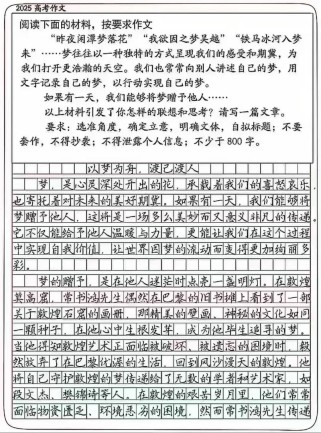 2025高考作文
阅读下面的材料,按要求作文
“昨夜闲潭梦落花”“我欲因之梦吴越”“铁马冰河入梦
来”……梦往往以一种独特的方式呈现我们的感受和期冀,为
我们打开更浩瀚的天空。我们也常常向别人讲述自己的梦,用
文字记录自己的梦,以行动实现自己的梦。
如果有一天,我们能够将梦赠予他人……
以上材料引发了你怎样的联想和思考?请写一篇文章。
要求:选准角度,确定立意,明确文体,自拟标题;不要
套作,不得抄袭;不得泄露个人信息;不少于800字。
以梦为舟,渡己渡人
梦,是心灵深处开出的花,承载着我们的喜怒哀乐,
也寄托着对未来的美好期冀。如果有一天,我们能够将
梦赠予他人,这将是一场多么美妙而又意义非凡的传递。
它不仅能给予他人温暖与力量,更能让我们在这个过程
中实现自我价值,让世界因梦的流动而变得更加绚丽多
彩。
梦的赠予,是在他人迷茫时点亮一盏明灯。在敦煌
莫高窟,常书鸿先生偶然在巴黎的旧书摊上看到了一部
关于敦煌石窟的画册,那精美的壁画、神秘的文化如同
一颗种子,在他心中生根发芽,成为他毕生追寻的梦。
当他得知敦煌艺术正面临被破坏、被遗忘的困境时,毅
然放弃了在巴黎优渥的生活,回到风沙漫天的敦煌。他
将自己守护敦煌的梦传递给了无数的学者和艺术家,如
段文杰、樊锦诗等人。在敦煌的艰苦岁月里,他们常常
面临物资匮乏、环境恶劣的困境,然而常书鸿先生传递